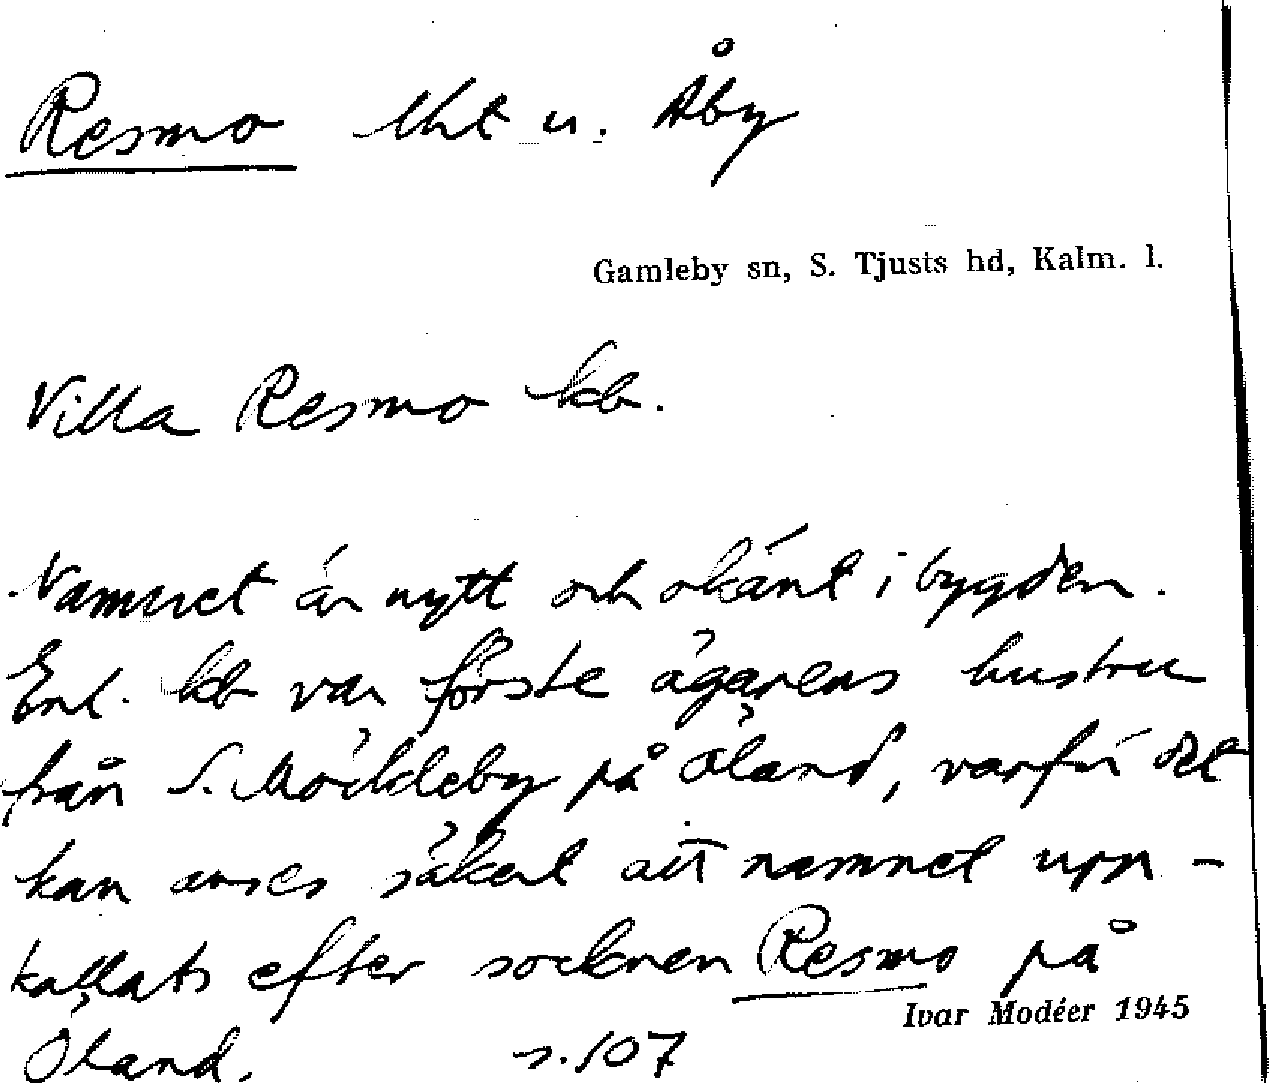 Resmo lht u. Åby
Gamleby sn, S. Tjusts hd, Kalm. l.
Villa Resmo kb.
Namnet är nytt och okänt i bygden.
Enl. kb var förste ägarens hustru
från S. Möckleby på Öland, varför det
kan anses säkert att namnet upp-
kallats efter socknen Resmo på
Ivar Modéer 1945
Öland. s. 107